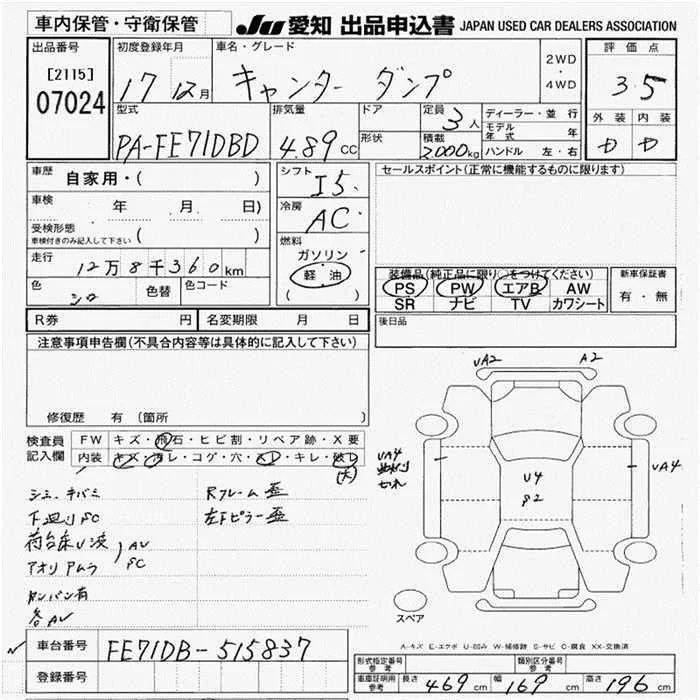 車内保管・守衛保管
JU 愛知 出品申込書 JAPAN USED CAR DEALERS ASSOCIATION
出品番号
[2115]
07024
初度登録年月
17 12月
車名・グレード
キャンター ダンプ
2WD
・
4WD
評価点
3.5
外装 内装
型式
PA-FE71DBD
排気量
4.89 CC
ドア
形状
定員
3人
積載
2000kg
ディーラー・並行
モデル年式 年
ハンドル 左・右
車歴
自家用・( )
車検 年 月 日)
受検形態
車検付きのみ記入して下さい ( )
走行
12万8千360km
色
シロ
色替
色コード
シフト
I5
冷房
AC
燃料
ガソリン
軽油
( )
セールスポイント(正常に機能するものに限ります)
装備品(純正品に限り○をつけてください)
PS PW エアB AW
SR ナビ TV カワシート
新車保証書
有・無
R券 円 名変期限 月 日
後日品
注意事項申告欄(不具合内容等は具体的に記入して下さい)
修復歴 有 〔箇所 〕
検査員
記入欄
FW キズ・飛石・ヒビ割・リペア跡・X要
内装 キズ・汚レ・コゲ・穴・スレ・キレ・破レ
(大)
シミ、キバミ
下廻りSC
アオリ
各AU
Rフレーム歪
左Fピラー歪
UA2
A2
UA4
UA4
U4
S2
スペア
A-キズ E-エクボ U-凹み W-補修跡 S-サビ C-腐食 XX-交換済
車台番号
FE71DB-515837
登録番号
形式指定番号
参考
類別区分番号
参考
車庫証明用
参考
長さ 469 cm 幅 169 cm 高さ 196 cm